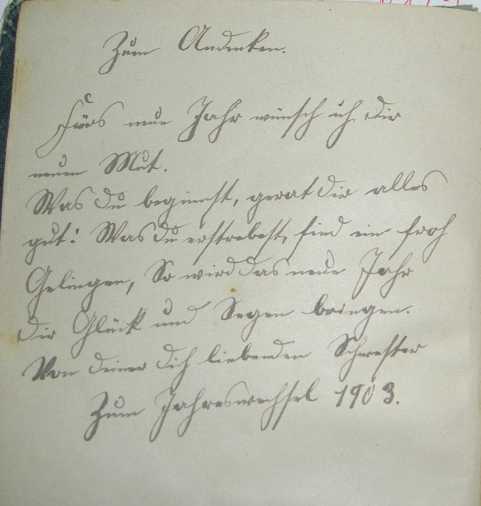 Zum Andenken.
Fürs neue Jahr wünsch ich dir
neuen Mut.
Was du beginnst, gerat dir alles
gut! Was du erstrebest, find ein froh
Gelingen, So wird das neue Jahr
dir Glück und Segen bringen.
Von deiner dich liebenden Schwester
Zum Jahreswechsel 1903.